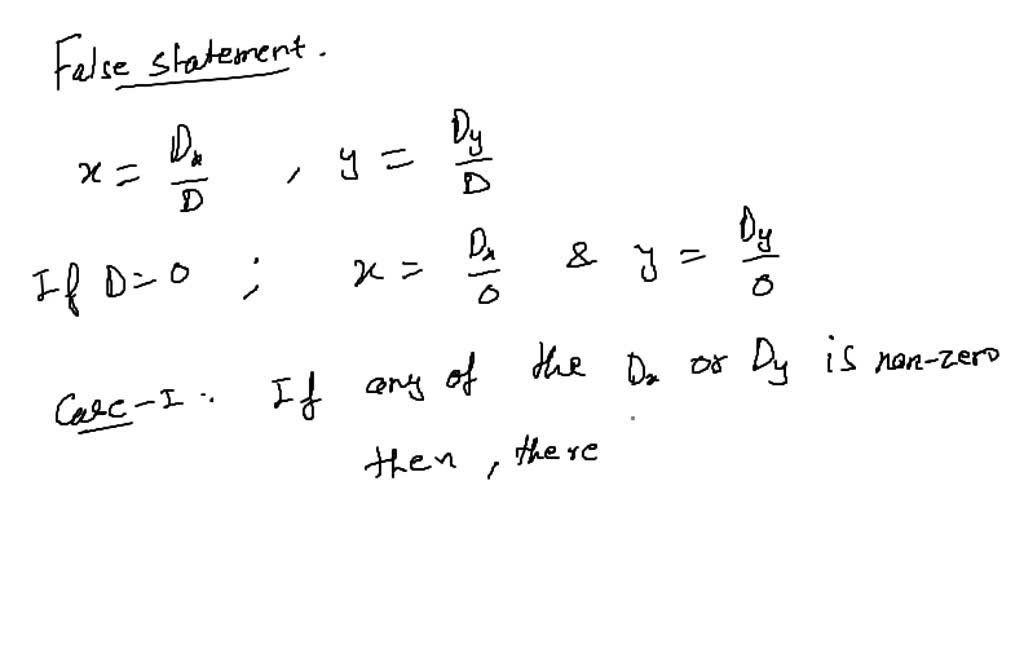 False statement.
x = Dx/D , y = Dy/D
If D=0 ; x = Dx/0 & y = Dy/0
Case-I :. If any of the Dx or Dy is non-zero
then , there